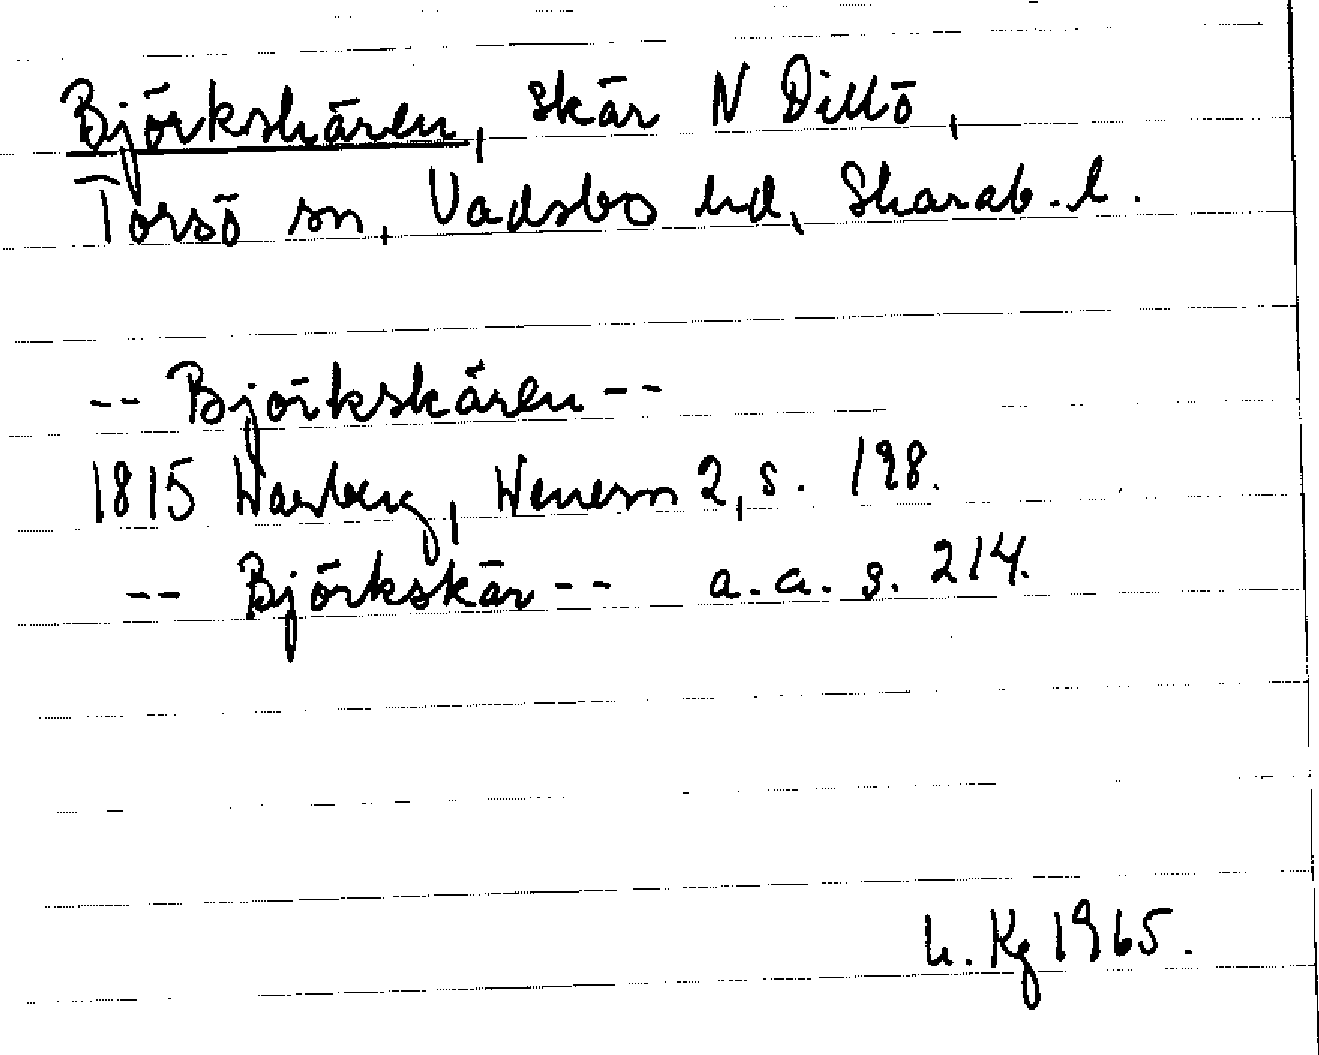 Björkskären, skär N Dillö,
Torsö sn, Vadsbo hd, Skarab. l.
-- Björkskären --
1815 Warberg, Wenern 2, s. 198.
-- Björkskär -- a. a. s. 214.
h. Kg 1965.